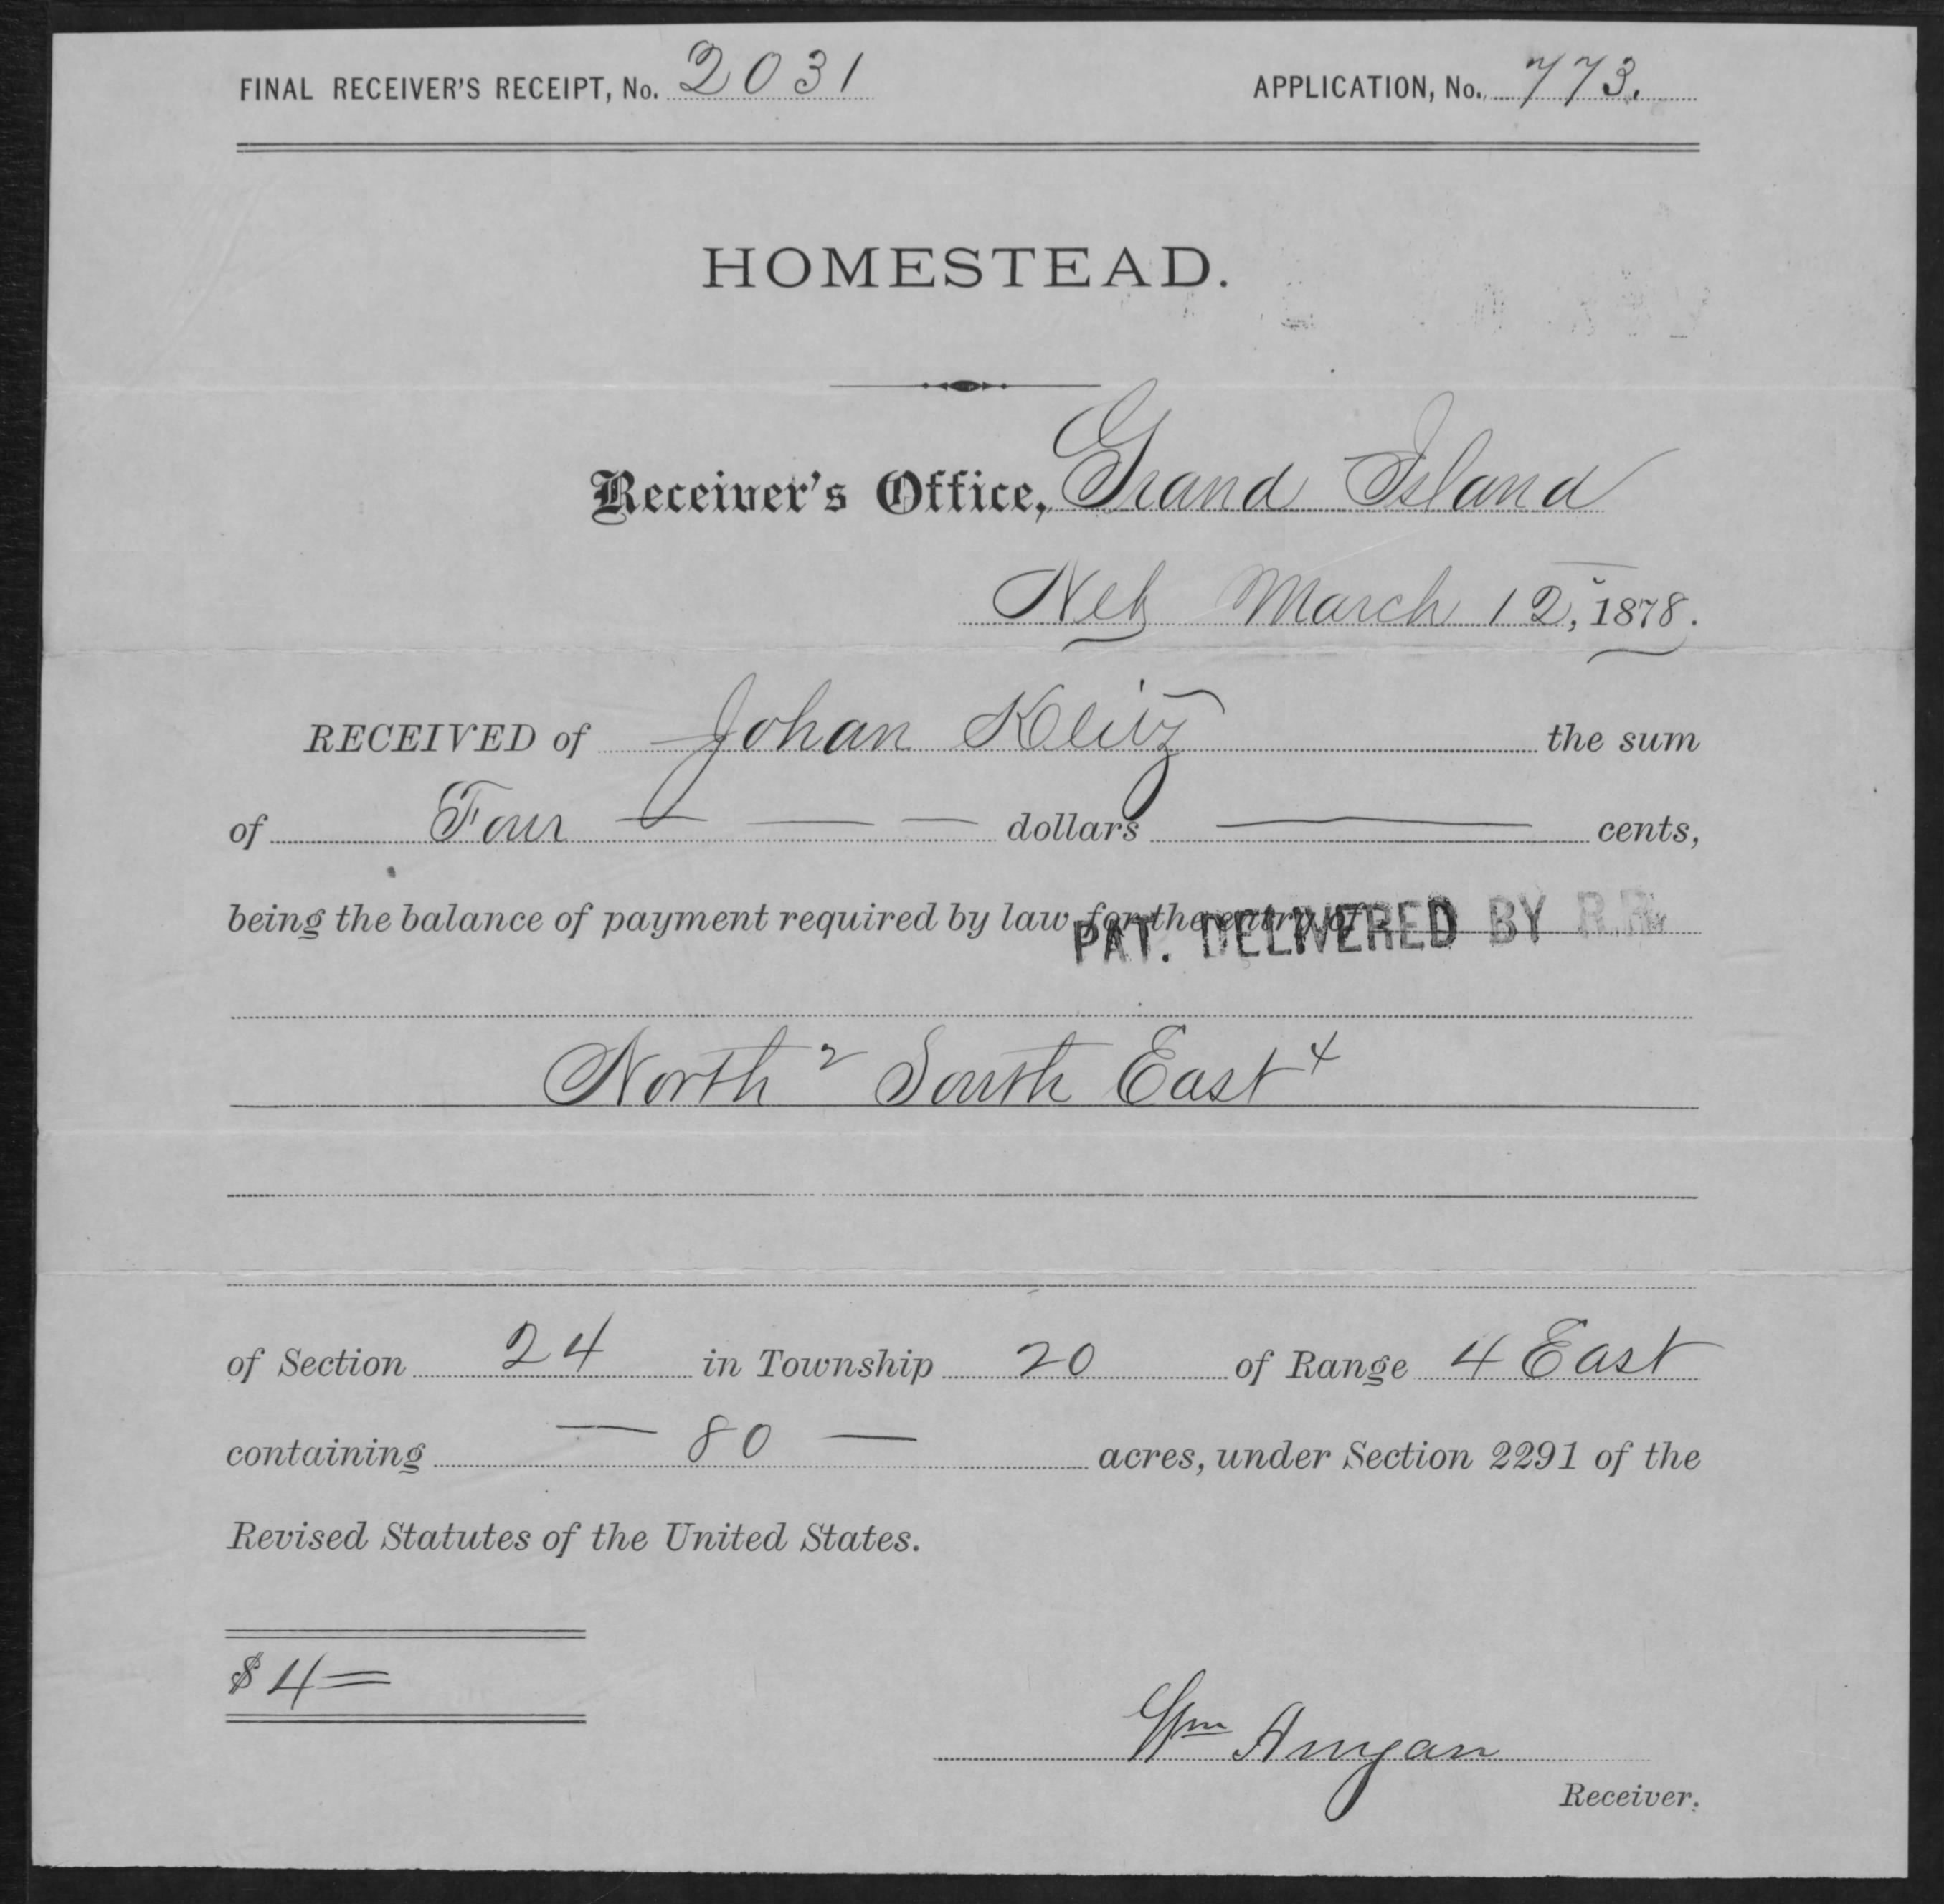 FINAL RECEIVER'S RECEIPT, No. 2031 APPLICATION, No. 773.
HOMESTEAD.
Receiver's Office, Grand Island
Neb March 12, 1878.
RECEIVED of Johan Klitz the sum
of Four — — — dollars — cents,
being the balance of payment required by law for the entry of
PAT. DELIVERED BY R.R.
North 2 South East 4
of Section 24 in Township 20 of Range 4 East
containing — 80 — acres, under Section 2291 of the
Revised Statutes of the United States.
$ 4 =
Wm Anyan
Receiver.